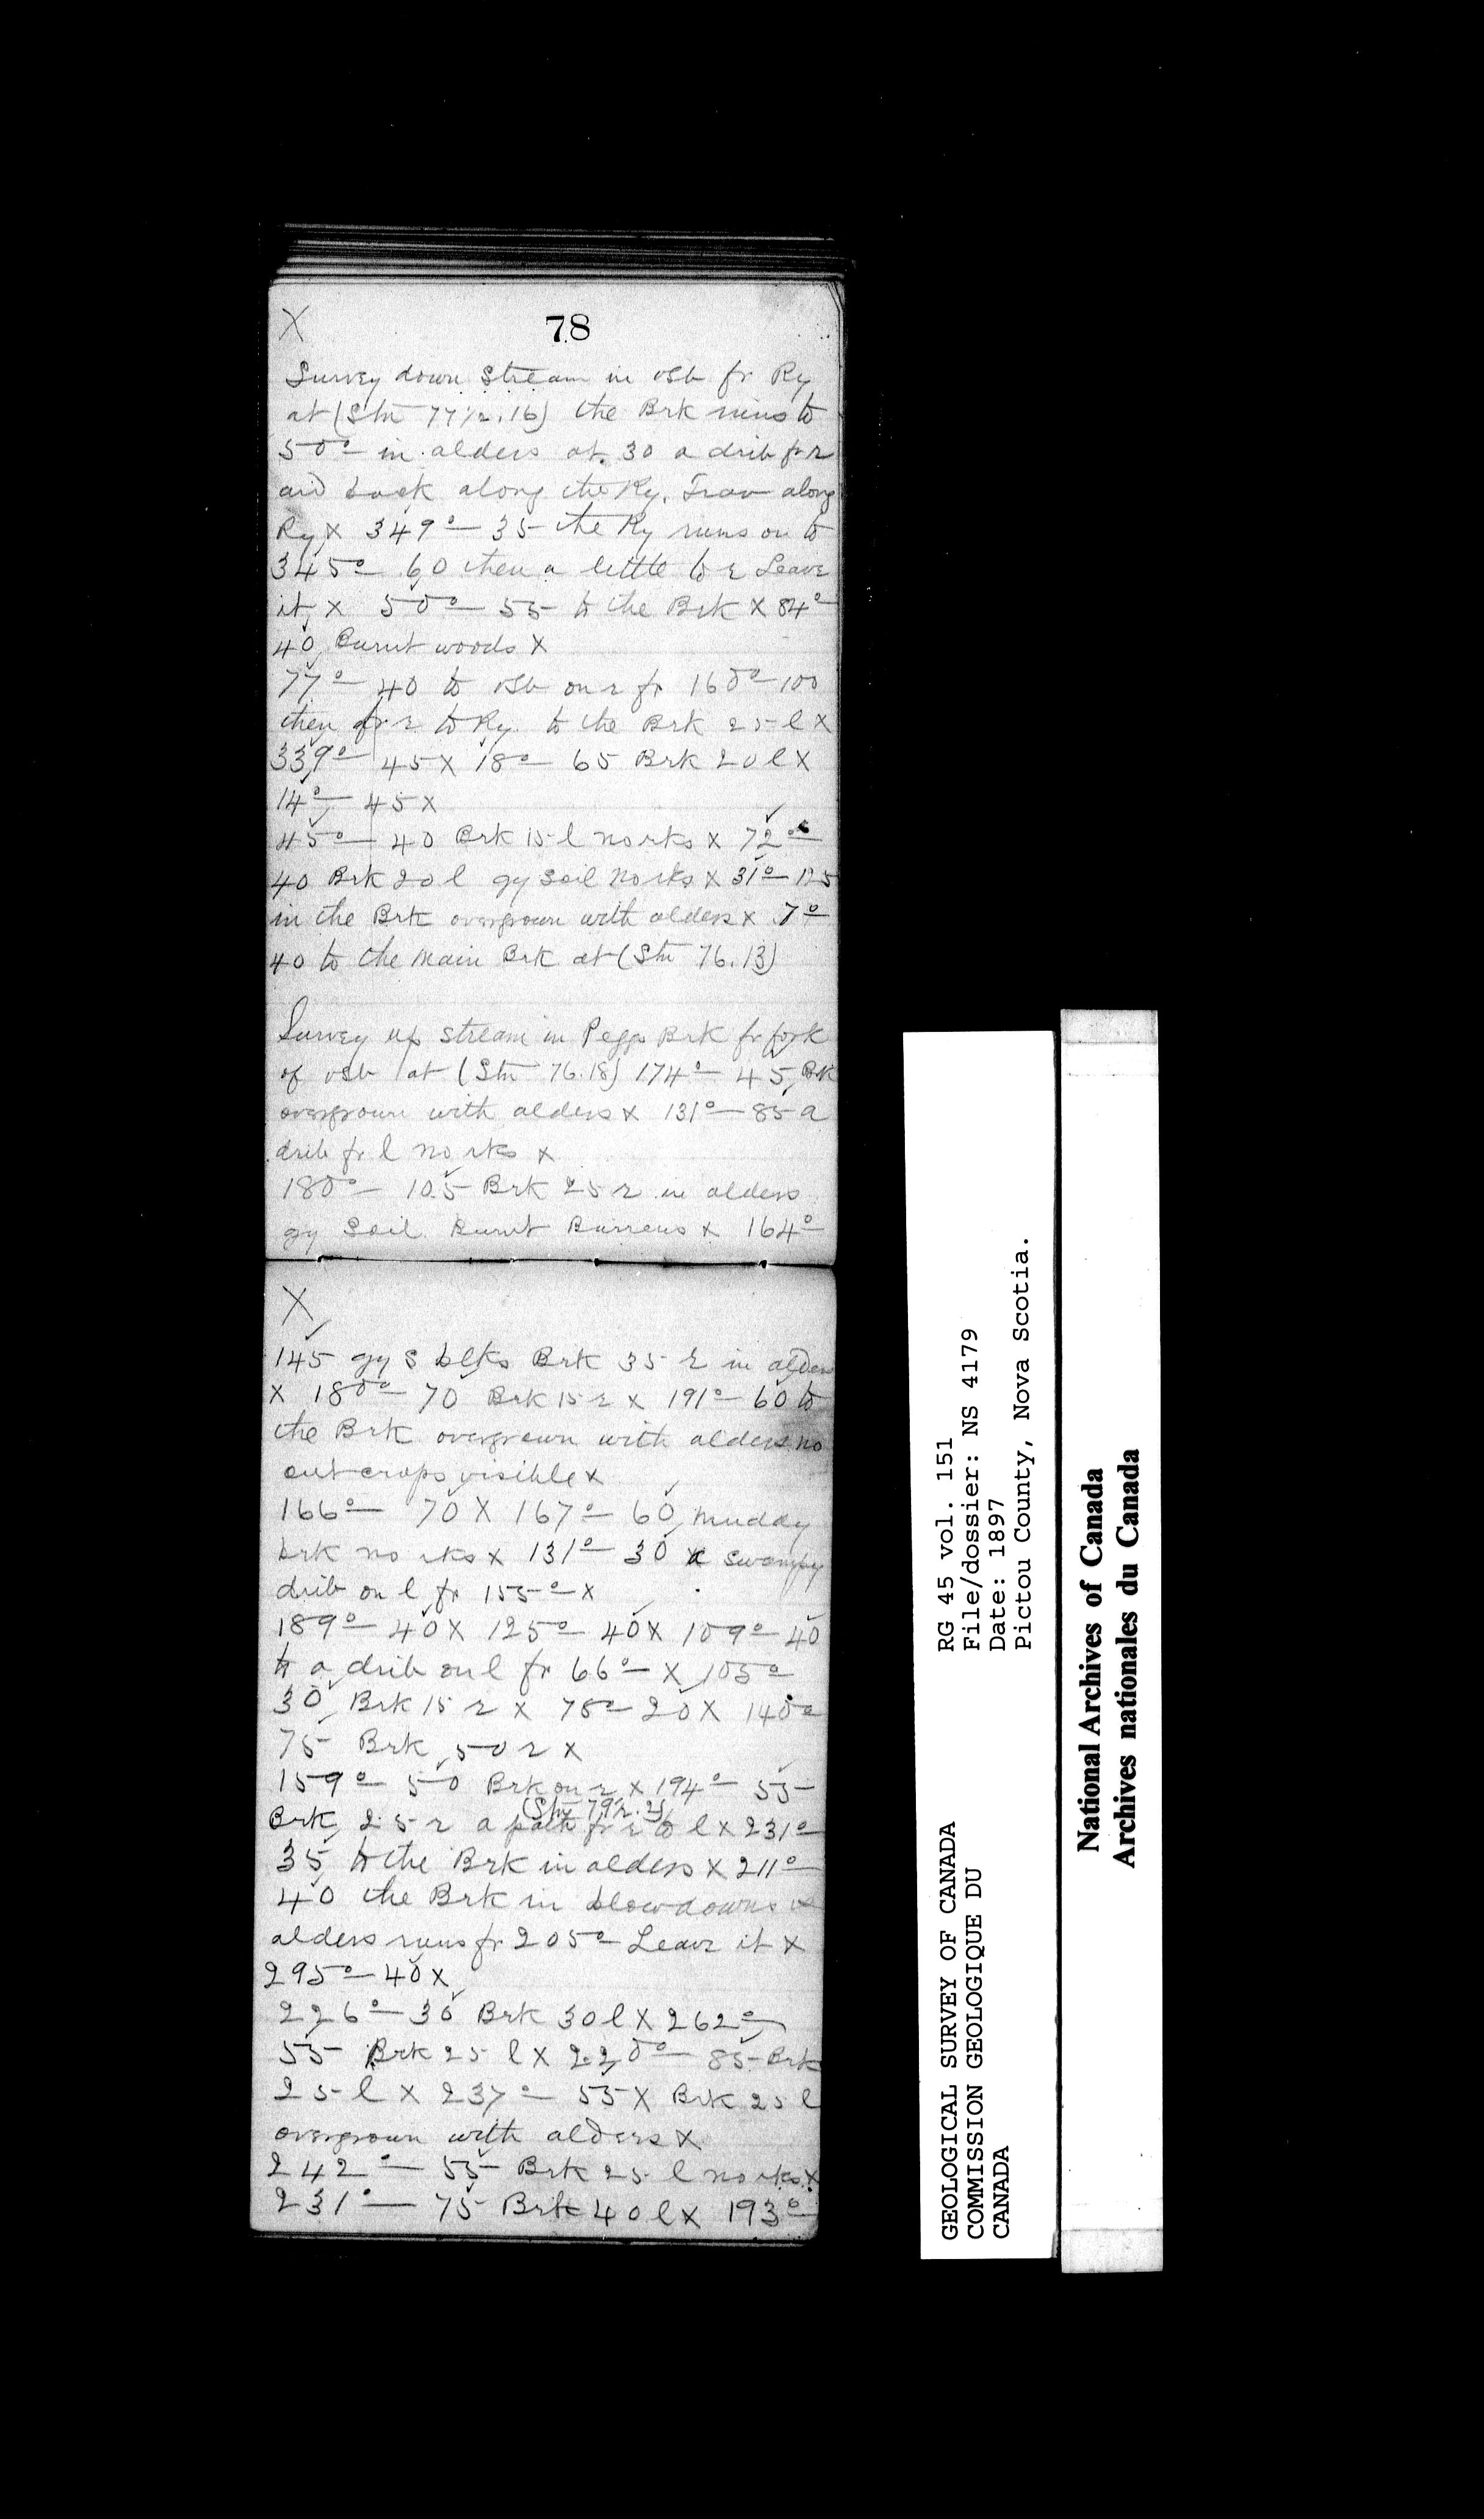 X
78
Survey down stream in vsb fr Ry
at (Stn 77½.16) the Brk runs to
50° in alders at 30 a drib fr r
and back along the Ry. Trav along
Ry X 349° — 35 the Ry runs on to
345° — 60 then a little to r Leave
it X 50° — 55 to the Brk X 84° —
40 Burnt woods X
77° — 40 to vsb on r fr 160° — 100
then fr r to Ry to the Brk 25 l X
339° — 45 X 18° — 65 Brk 20 l X
14° — 45 X
45° — 40 Brk 15 l no rks X 72° —
40 Brk 20 l gy soil no rks X 31° — 125
in the Brk overgrown with alders X 7° —
40 to the main Brk at (Stn 76.13)
Survey up stream in Peggs Brk fr fork
of vsb at (Stn 76.18) 174° — 45 Brk
overgrown with alders X 131° — 85 a
drib fr l no rks X
180° — 105 Brk 25 r in alders
gy soil Burnt Barrens X 164° —
X
145 gy s blks Brk 35 r in alders
X 180° — 70 Brk 15 r X 191° — 60 to
the Brk overgrown with alders no
outcrops visible X
166° — 70 X 167° — 60, muddy
brk no rks X 131° — 30 a swampy
drib on l fr 155° — X
189° — 40 X 125° — 40 X 109° — 40
to a drib on l fr 66° — X 105° —
30 Brk 15 r X 78° — 20 X 140° —
75 Brk 50 r X
159° — 50 Brk on r X 194° — 55
(Stn 79½.2)
Brk 25 r a path fr r to l X 231° —
35 to the Brk in alders X 211° —
40 the Brk in blowdowns
alders runs fr 205° — Leave it X
295° — 40 X
226° — 30 Brk 30 l X 262° —
55 Brk 25 l X 220° — 85 Brk
25 l X 237° — 55 X Brk 25 l
overgrown with alders X
242° — 55 Brk 25 l no rks X
231° — 75 Brk 40 l X 193° —
GEOLOGICAL SURVEY OF CANADA
COMMISSION GEOLOGIQUE DU
CANADA
RG 45 vol. 151
File/dossier: NS 4179
Date: 1897
Pictou County, Nova Scotia.
National Archives of Canada
Archives nationales du Canada